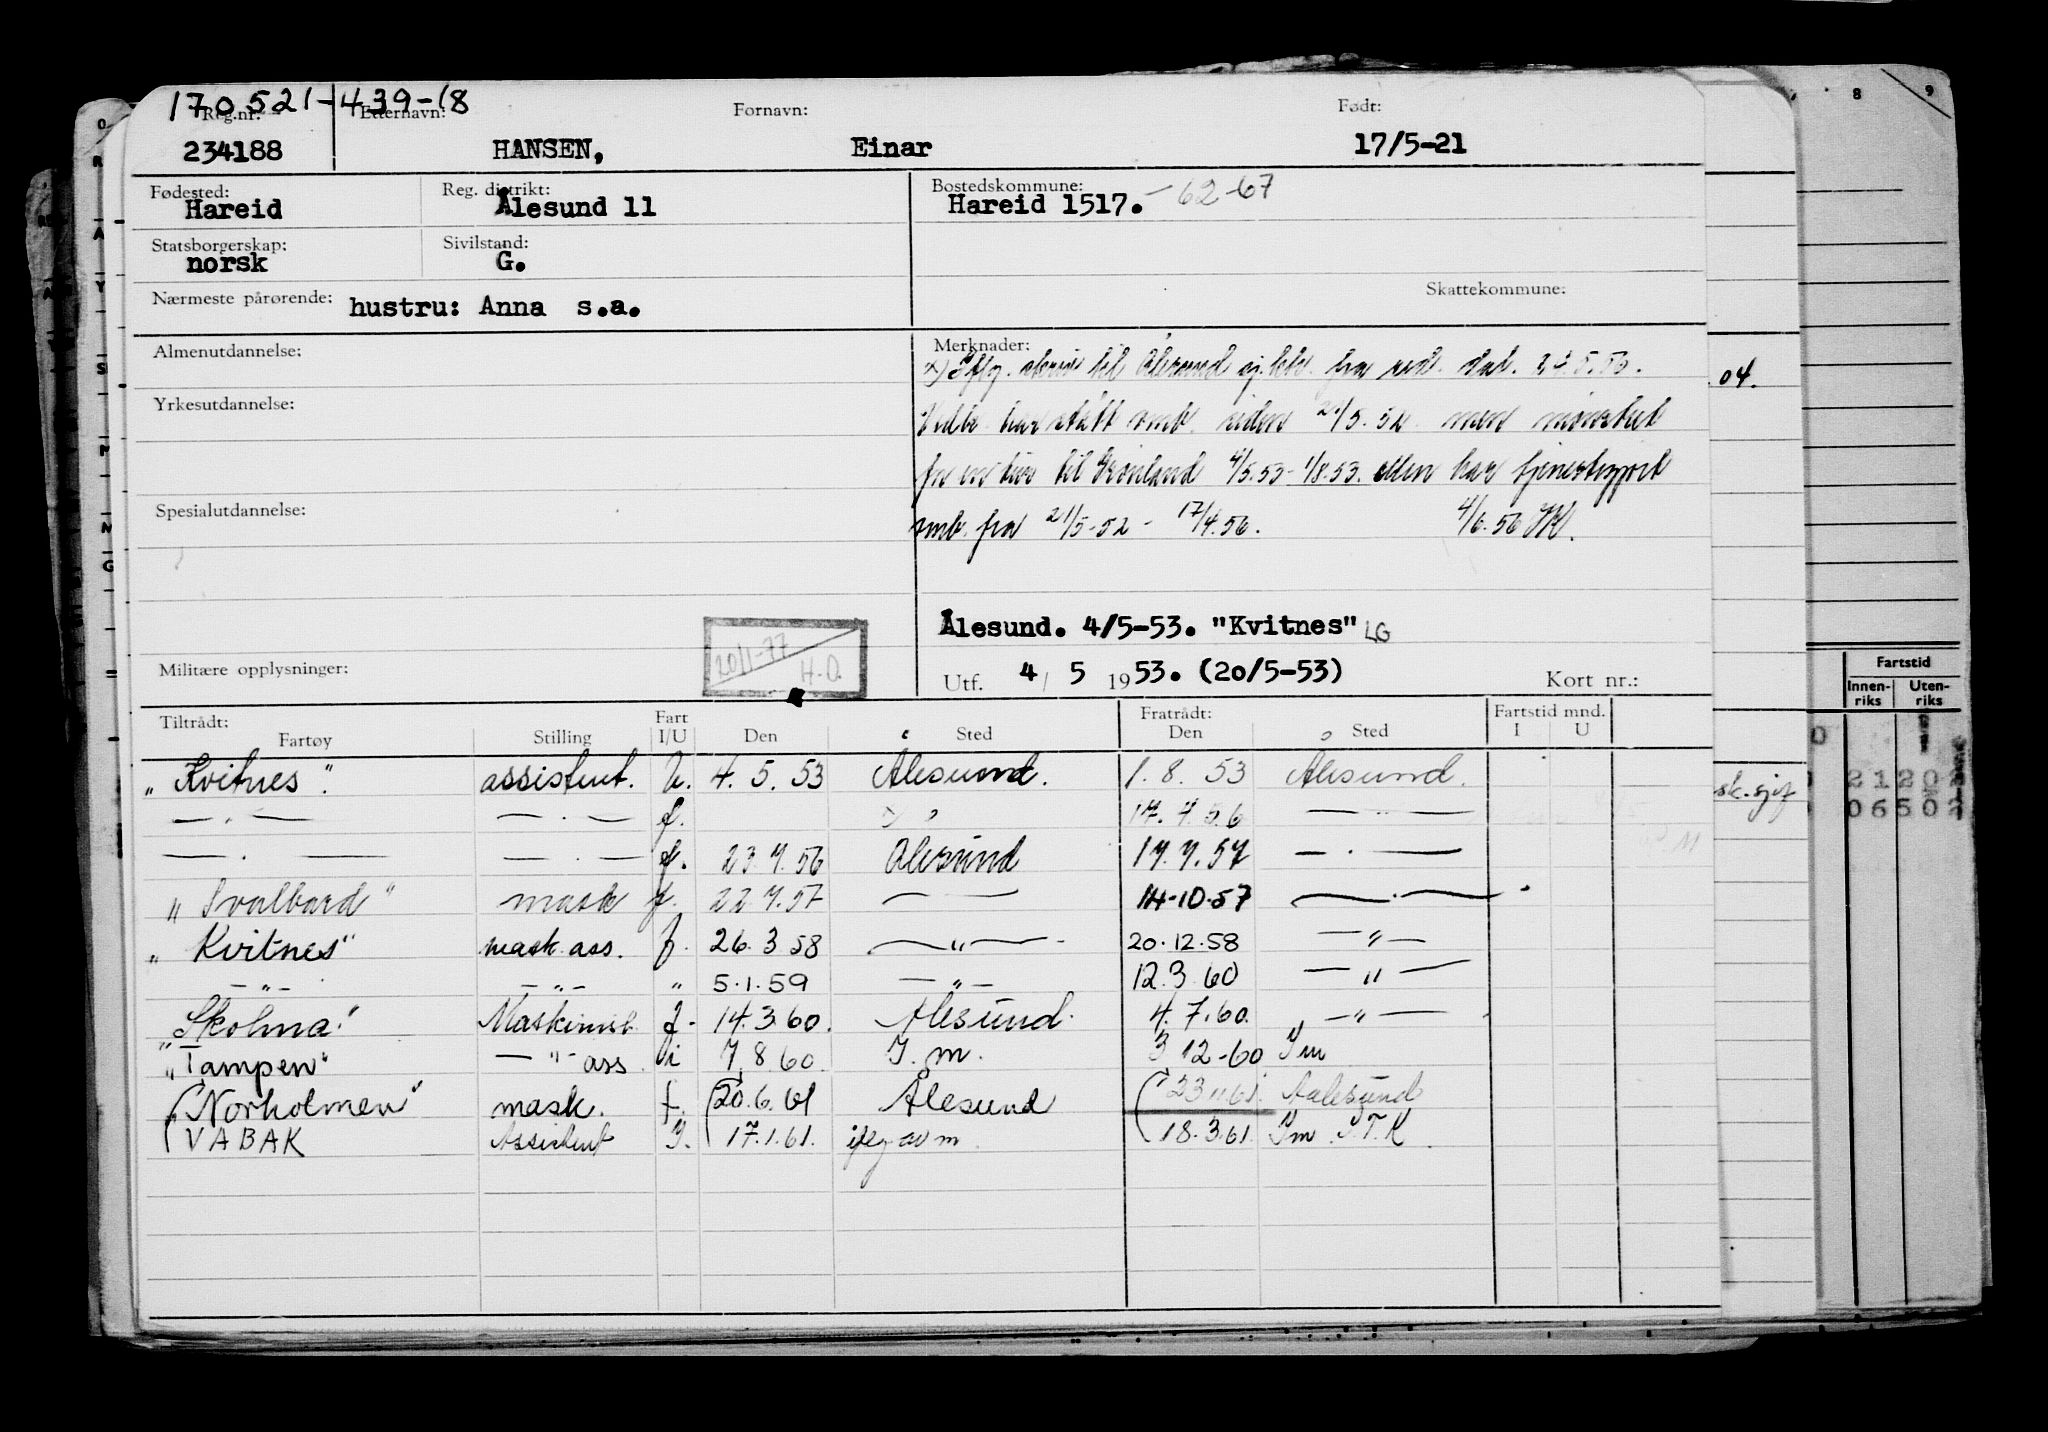 170521-439-18
Reg.nr. Etternavn: Fornavn: Født:
234188 HANSEN, Einar 17/5-21
Fødested: Reg. distrikt: Bostedskommune:
Hareid Ålesund 11 Hareid 1517. - 62-67
Statsborgerskap: Sivilstand:
norsk G.
Skattekommune:
Nærmeste pårørende: hustru: Anna s.a.
Almenutdannelse: Merknader:
x) Iflg. skriv til Ålesund fra red. dat. 24.5.56.
Yrkesutdannelse:
Vedk. har stått omb. siden 21/5.52 men mønstret
for en tur til Grønland 4/5.53-1/8.53. ellers har tjenestegjort
Spesialutdannelse:
omb. fra 21/5-52 - 17/4.56. 4/6.56
Ålesund. 4/5-53. "Kvitnes" LG
20/1-77 H.O.
Militære opplysninger:
Utf. 4/ 5 1953. (20/5-53) Kort nr.:
Tiltrådt: Fart Fratrådt: Fartstid mnd.
Fartøy Stilling I/U Den Sted Den Sted I U
"Kvitnes". assistent. U. 4. 5. 53 Ålesund. 1. 8. 53 Ålesund.
— . — — . — f. x) 17. 4. 56 — " —
— . — — . — f. 23 4. 56 Ålesund 17. 7. 57 — . —
"Svalbard" mask f. 22 7. 57 — 14-10-57 — . —
"Kvitnes" mask. ass. f. 26. 3 58 — " — 20. 12. 58 — " —
— " — — " — " 5. 1. 59 — " — 12. 3 60 — " —
"Skolma" Maskinist f. 14. 3. 60. Ålesund. 4. 7. 60. — " —
"Tampen" — " — ass i 7. 8 60. I. m. 3 12-60 I m
"Norholmen" mask. f. 20. 6. 61 Ålesund 23 11 61. Aalesund
VABAK Assistent I. 17. 1. 61. iflg av m. 18. 3. 61. I m S.T.K.
O
R
A
Y
S
N
G
04.
sk. sjef
8 9
Fartstid
Innen-
riks
Uten-
riks
2120
06502